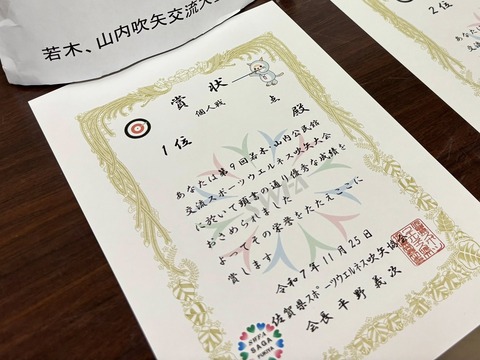 若木、山内吹矢交流大
賞状
個人戦 点
1位 殿
あなたは第9回若木、山内公民館
交流スポーツウエルネス吹矢大会
に於いて頭書の通り優秀な成績を
おさめられました
よってその栄誉をたたえここに
賞します
令和7年11月25日
佐賀県スポーツウエルネス吹矢協会
会長 平野義次
SAGA
2位